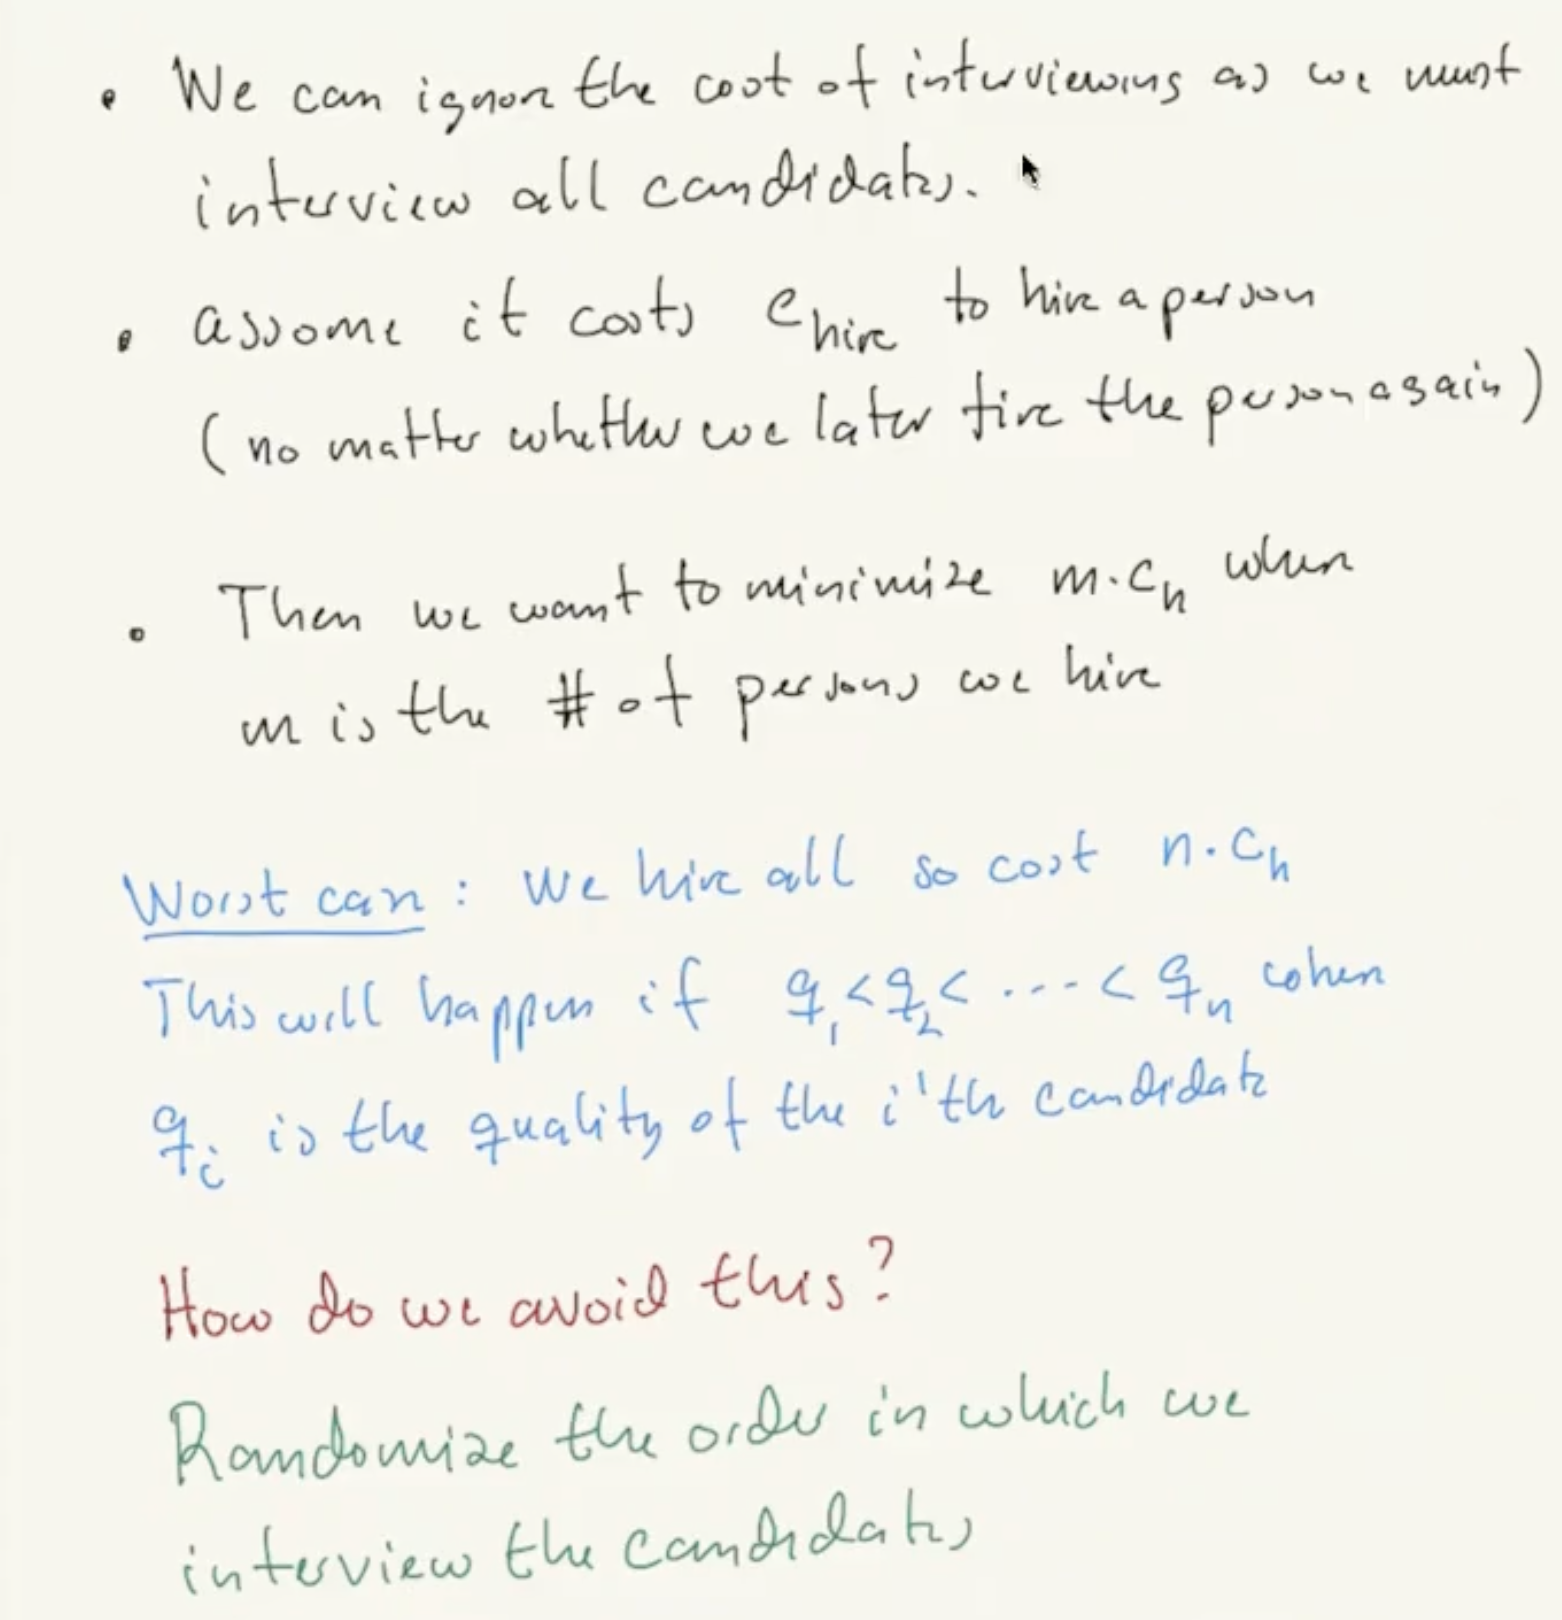 • We can ignore the cost of interviewing as we must
interview all candidates.
• assume it costs c_hire to hire a person
(no matter whether we later fire the person again)
• Then we want to minimize m·c_h when
m is the # of persons we hire
Worst case: We hire all so cost n·c_h
This will happen if q_1 < q_2 < ... < q_n when
q_i is the quality of the i'th candidate
How do we avoid this?
Randomize the order in which we
interview the candidates